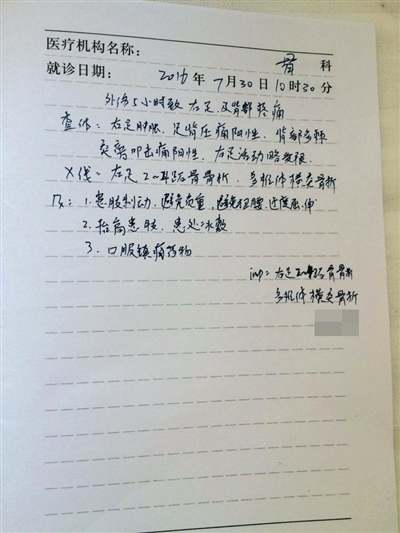 医疗机构名称：
骨 科
就诊日期： 2016年 7月30日 10时30分
外伤5小时致 右足及背部疼痛
查体：右足肿胀，足背压痛阳性，背部多棘
突旁叩击痛阳性，右足活动略受限
X线：右足2-4跖骨骨折，多椎体横突骨折
1.患肢制动，避免负重，避免过度屈伸
2.抬高患肢，患处冰敷
3.口服镇痛药物
imp：右足2-4跖骨骨折
多椎体横突骨折